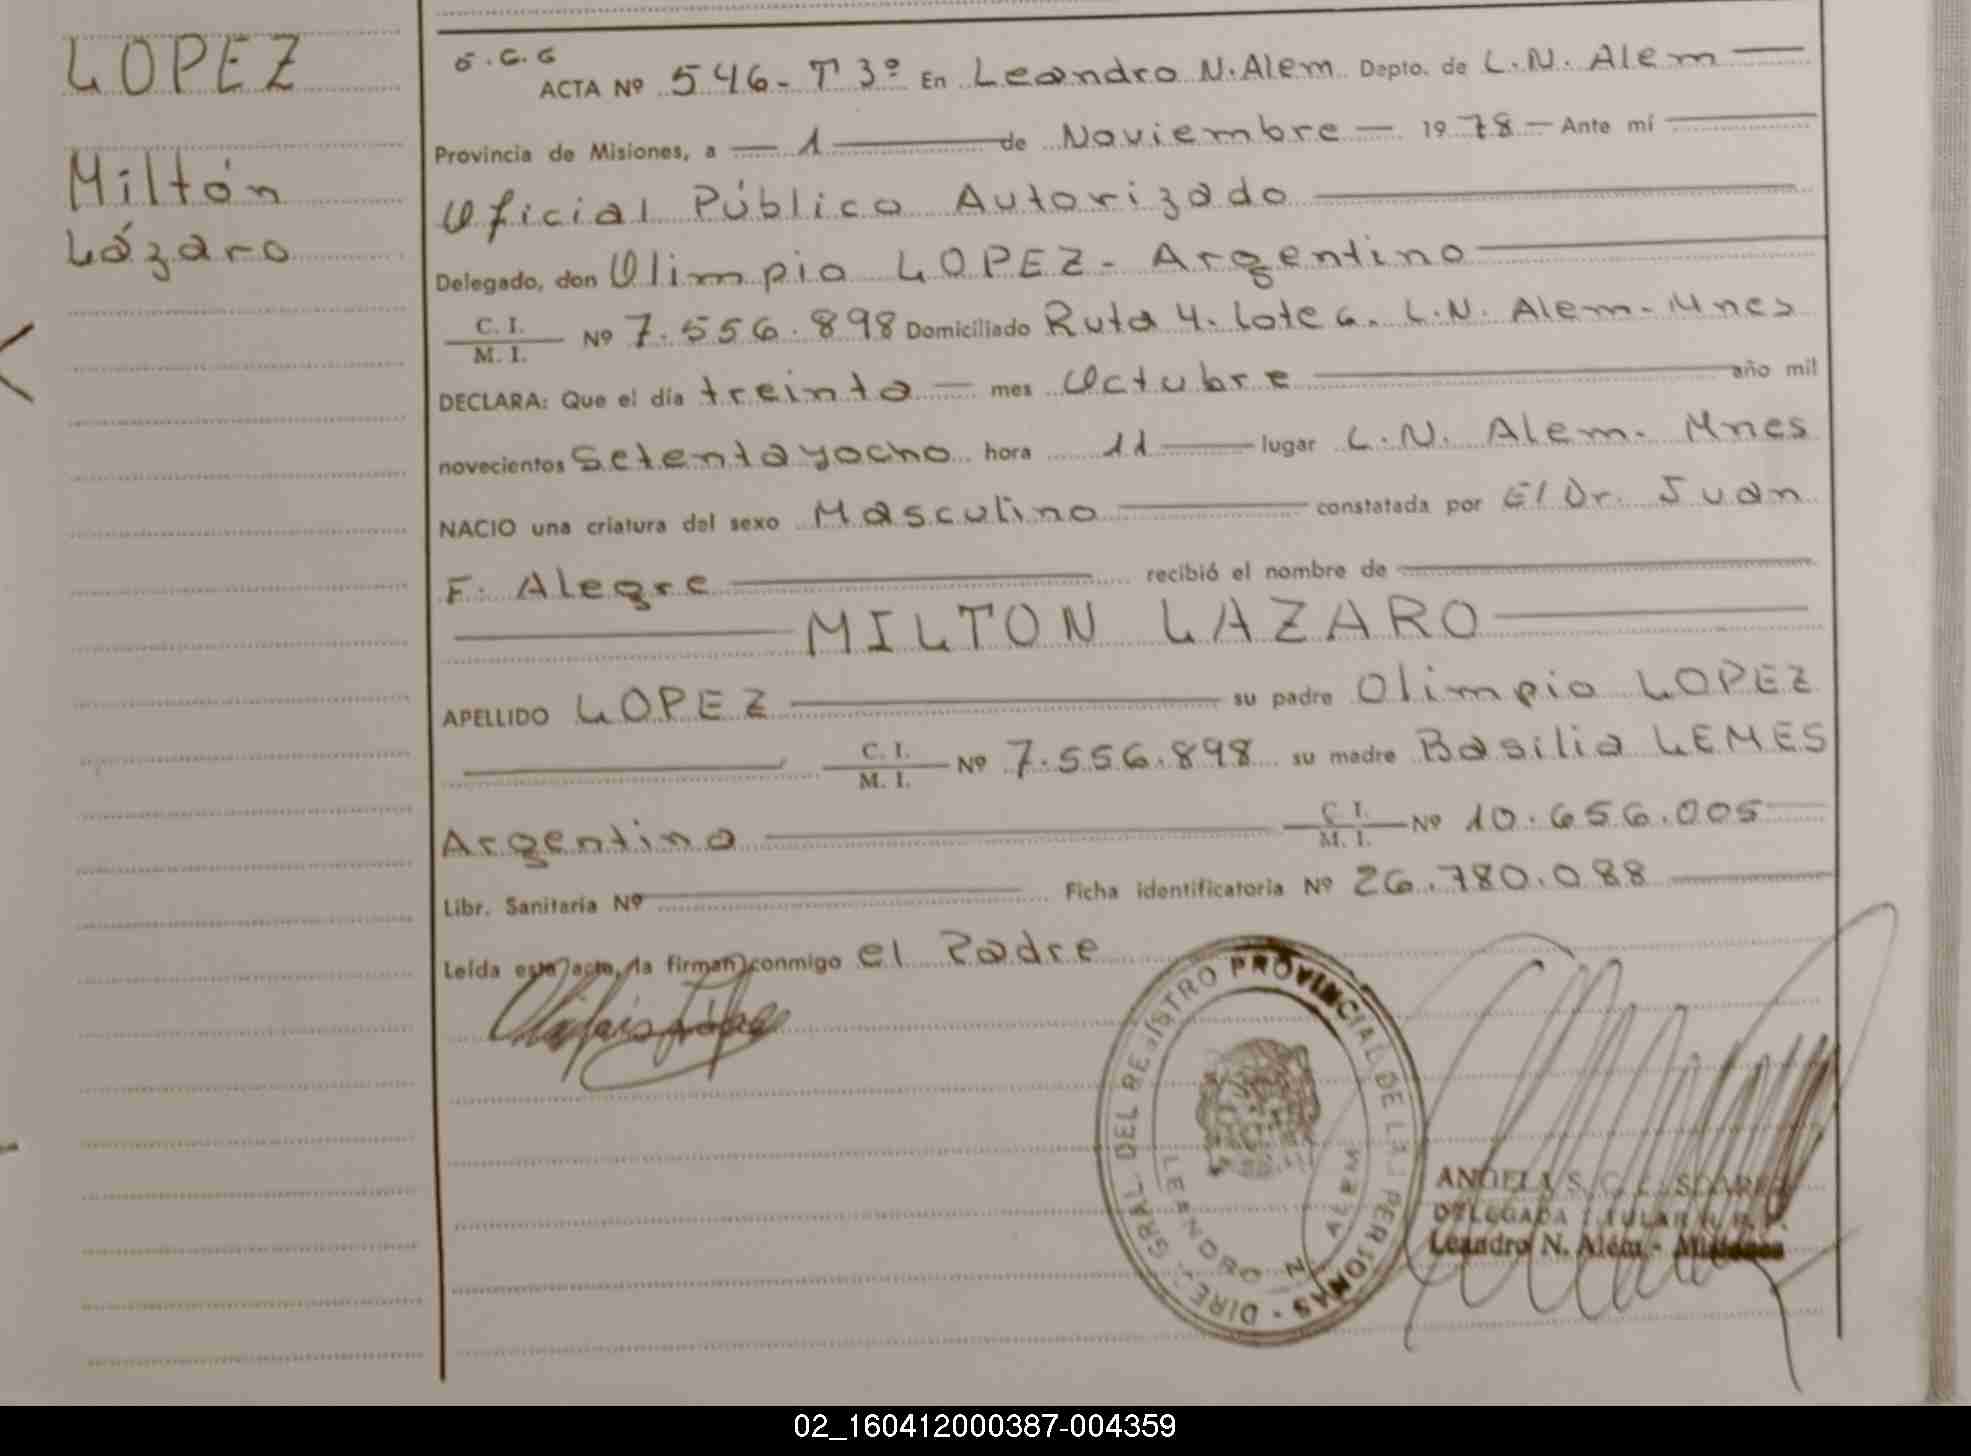 LOPEZ
Miltón
Lázaro
ACTA Nº 546- T 3º En Leandro N. Alem Depto. de L.N. Alem
Provincia de Misiones, a 1 de Noviembre 1978 Ante mí
Oficial Público Autorizado
Delegado, don Olimpio LOPEZ- Argentino
C. I.
M. I. Nº 7.556.898 Domiciliado Ruta 4. Lote 6. L.N. Alem- Mnes
DECLARA: Que el día treinta mes Octubre año mil
novecientos Setentayocho hora 11 lugar L.N. Alem. Mnes
NACIO una criatura del sexo Masculino constatada por El Dr. Juan
F. Alegre recibió el nombre de
MILTON LAZARO
APELLIDO LOPEZ su padre Olimpio LOPEZ
C. I.
M. I. Nº 7.556.898 su madre Basilia LEMES
Argentina C. I.
M. I. Nº 10.656.005
Libr. Sanitaria Nº Ficha identificatoria Nº 26.780.088
Leída esta acta, la firman conmigo el Padre
DIRE. GRAL. DEL REGISTRO PROVINCIAL DE LAS PERSONAS
LEANDRO N. ALEM
ANGELA S.
DELEGADA TITULAR
Leandro N. Alem - Misiones
02_160412000387-004359